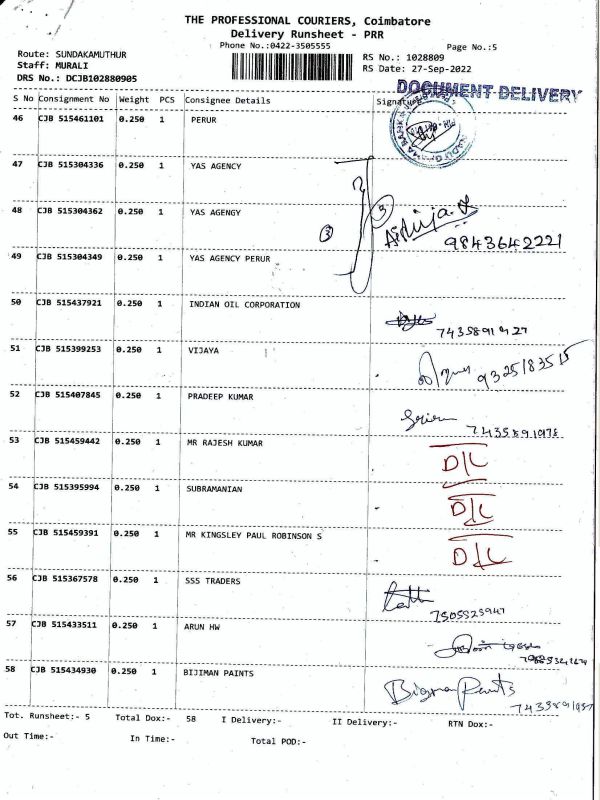 THE PROFESSIONAL COURIERS, Coimbatore
Delivery Runsheet - PRR
Phone No.:0422-3505555
Page No.:5
Route: SUNDAKAMUTHUR
Staff: MURALI
DRS No.: DCJB102880905
RS No.: 1028809
RS Date: 27-Sep-2022
DOCUMENT DELIVERY
S No Consignment No Weight PCS Consignee Details Signature
46 CJB 515461101 0.250 1 PERUR
47 CJB 515304336 0.250 1 YAS AGENCY
48 CJB 515304362 0.250 1 YAS AGENGY
3 3
9843642221
49 CJB 515304349 0.250 1 YAS AGENCY PERUR
50 CJB 515437921 0.250 1 INDIAN OIL CORPORATION
51 CJB 515399253 0.250 1 VIJAYA
52 CJB 515407845 0.250 1 PRADEEP KUMAR
53 CJB 515459442 0.250 1 MR RAJESH KUMAR D/L
54 CJB 515395994 0.250 1 SUBRAMANIAN D/L
55 CJB 515459391 0.250 1 MR KINGSLEY PAUL ROBINSON S D/L
56 CJB 515367578 0.250 1 SSS TRADERS
57 CJB 515433511 0.250 1 ARUN HW
58 CJB 515434930 0.250 1 BIJIMAN PAINTS
Tot. Runsheet:- 5 Total Dox:- 58 I Delivery:- II Delivery:- RTN Dox:-
Out Time:- In Time:- Total POD:-